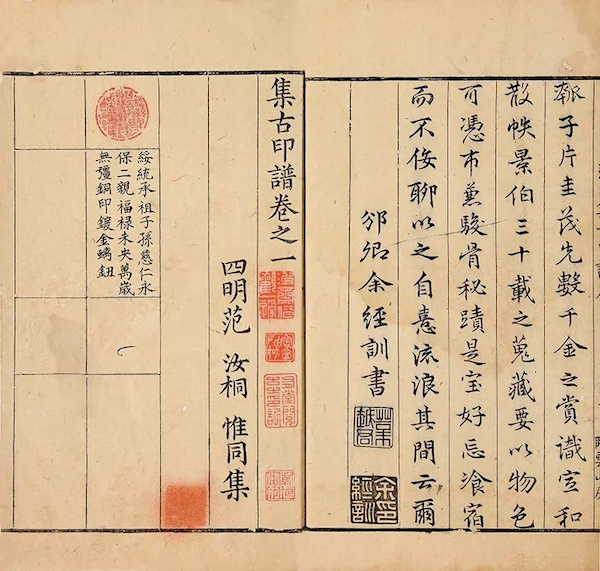 子片圭茂先數千金之賞識宣和
散帙景伯三十載之蒐藏要以物色
可憑市兼駿骨秘蹟是宝好忘飡宿
而不侫聊以之自憙流浪其間云爾
邠卿余經訓書
集古印譜卷之一
四明范 汝桐 惟同集
綏統承祖子孫慈仁永
保二親福禄未央萬歳
無彊銅印鍍金螭鈕